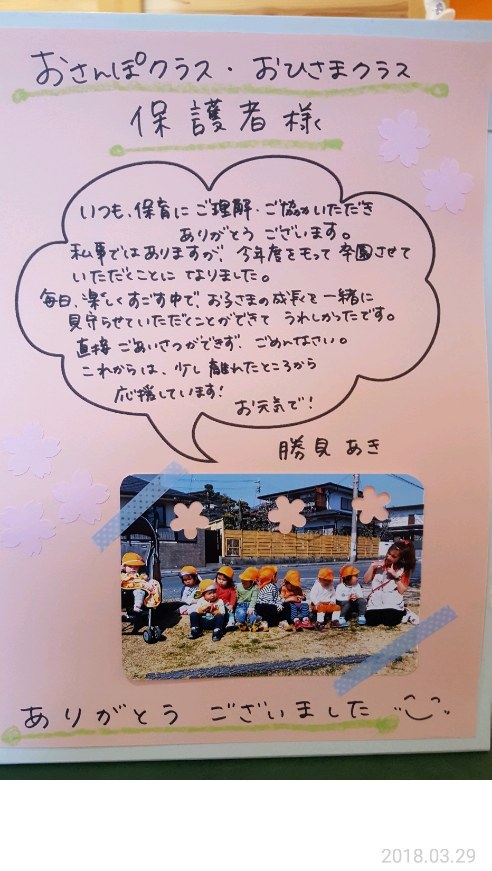 おさんぽクラス・おひさまクラス
保護者様
いつも、保育にご理解・ご協力いただき
ありがとうございます。
私事ではありますが、今年度をもって卒園させて
いただくことになりました。
毎日、楽しくすごす中で、お子さまの成長を一緒に
見守らせていただくことができてうれしかったです。
直接ごあいさつができず、ごめんなさい。
これからは、少し離れたところから
応援しています!
お元気で!
勝見あき
ありがとうございました
2018.03.29